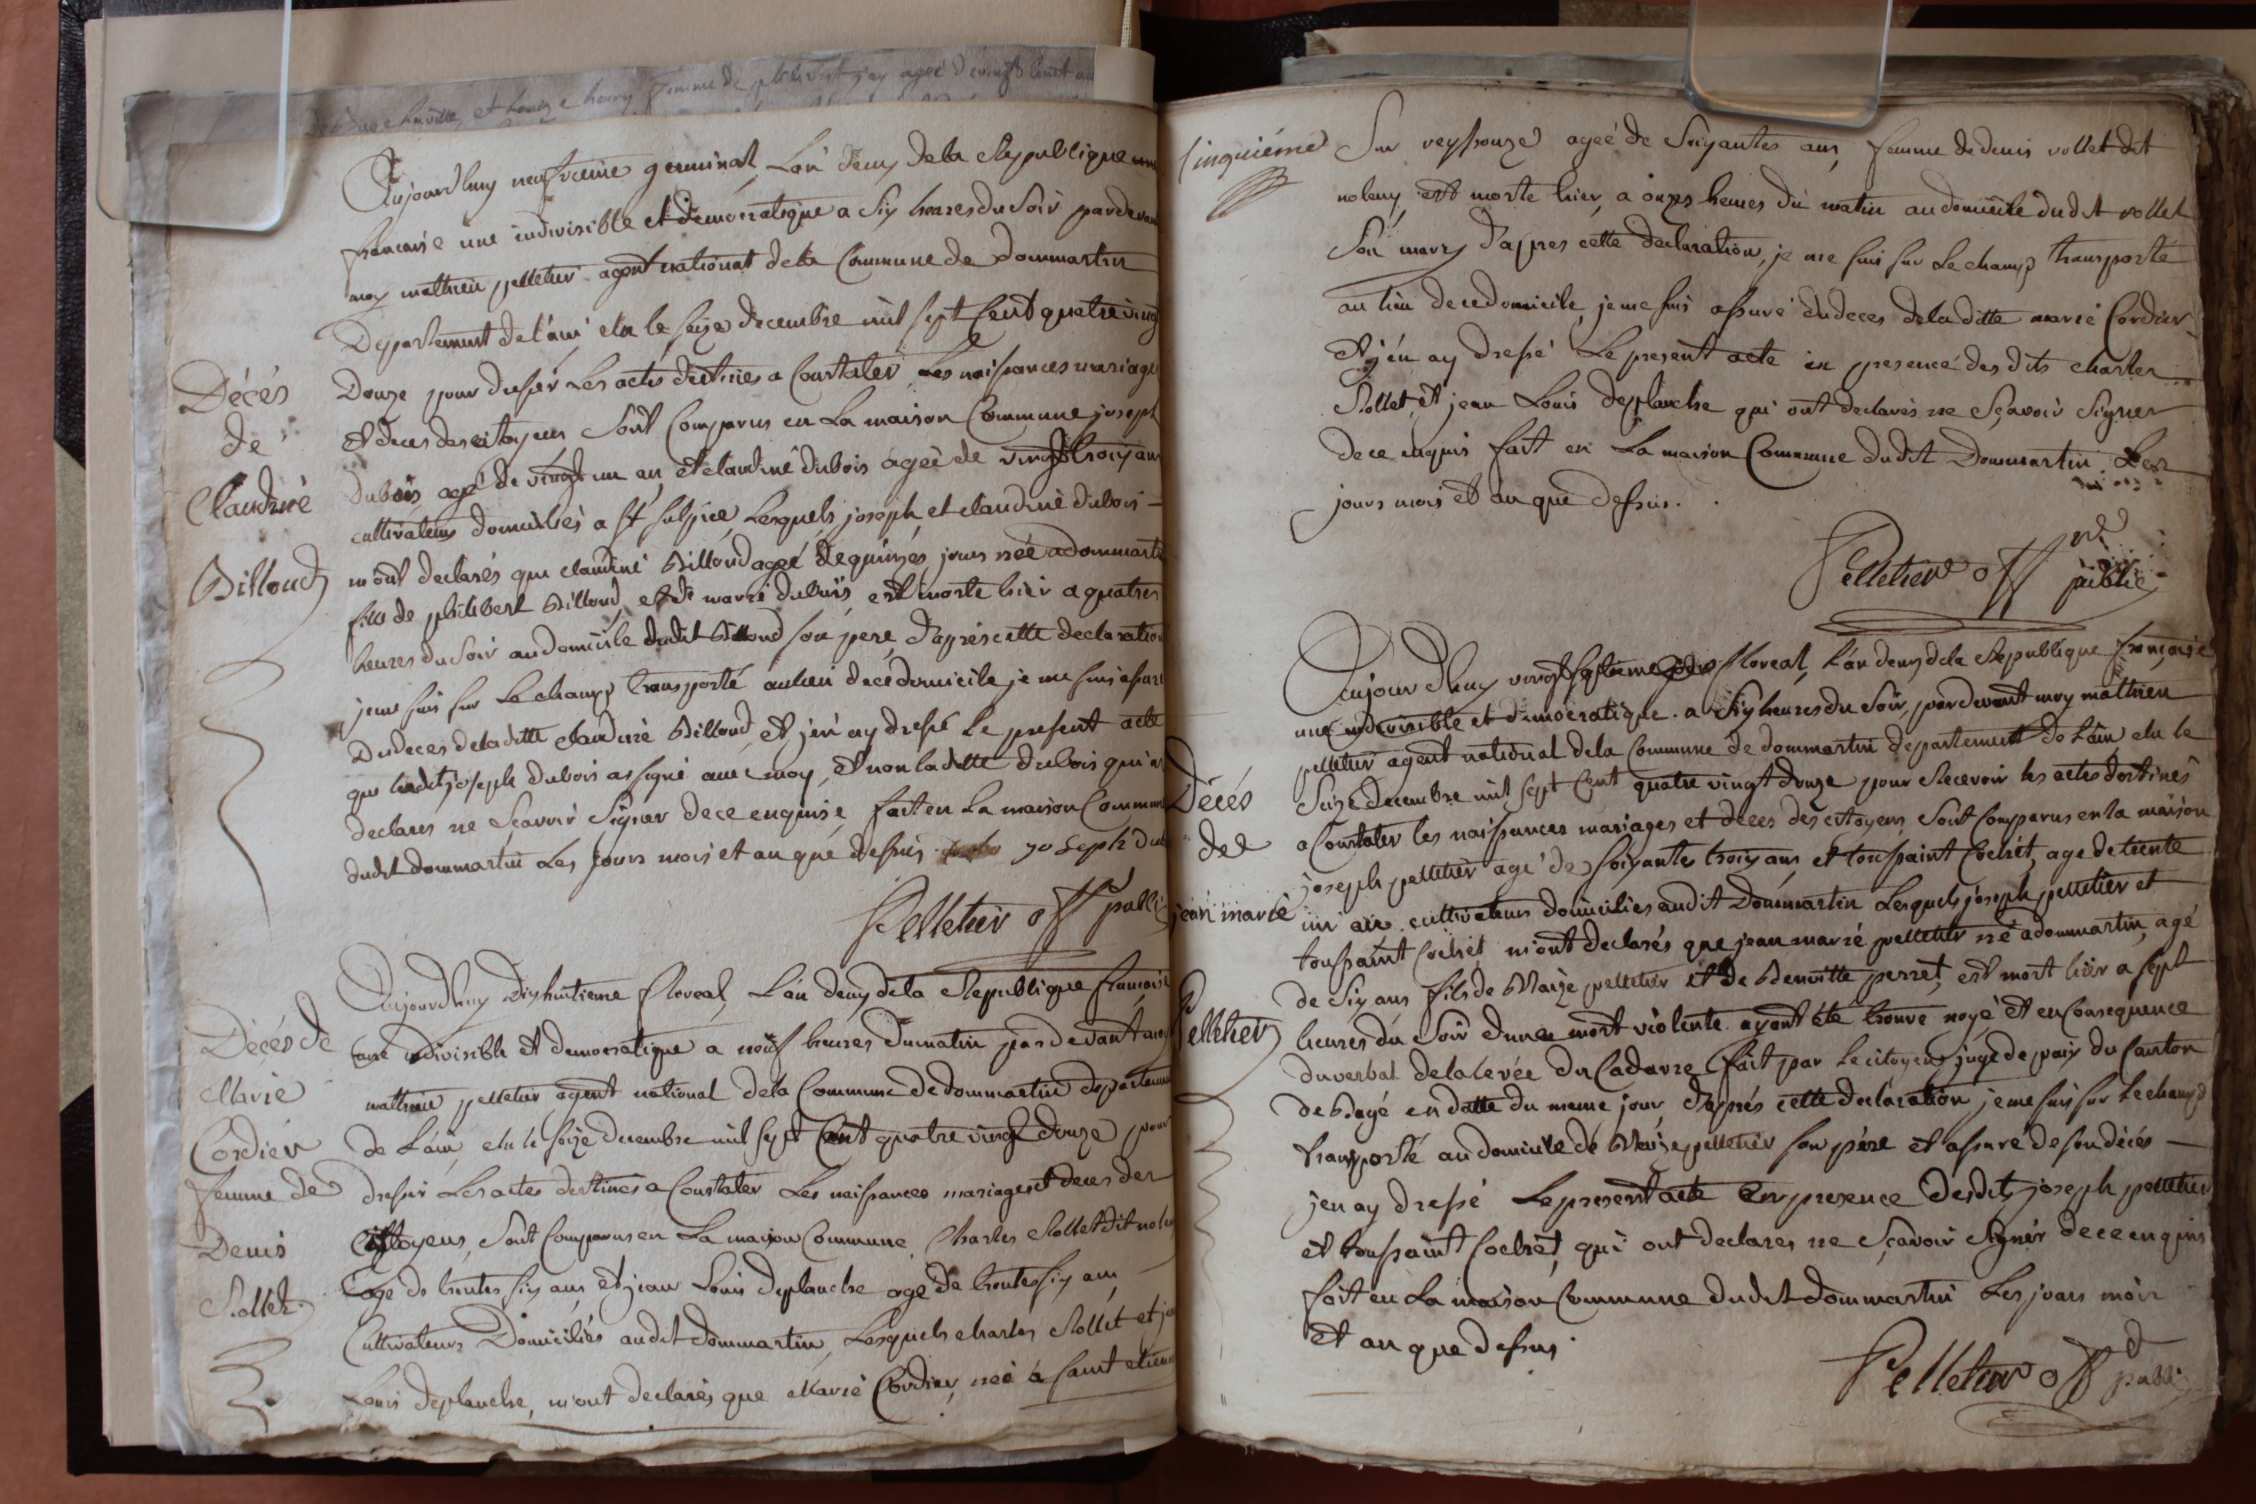 Aujourdhuy neufvieme germinal, L'an deux de la Republique
francaise une indivisible et democratique a six heures du Soir pardevant
moy mathieu pelletier agent national de la Commune de dommartin
Departement de l'ain elu le seize decembre mil sept Cent quatre vingt
Douze pour dresser Les actes destinés a Constater Les naissances mariages
et deces des citoyens Sont Comparus en La maison Commune joseph
dubois agé de vingt un an et claudine dubois ageé de vingt trois ans
cultivateurs domiciliés a st sulpice, Lesquels joseph et claudine dubois
Décés
de
Claudine
Billoud
m'ont declarés que claudine Billoud ageé de quinzes jours neé a dommartin
fille de philibert Billoud et de marie dubois, est morte hier a quatres
heures du Soir au domicile dudit Billoud son pere, D'après cette declaration
je me suis sur Le champs transporté au lieu de ce domicile je me suis assuré
Du deces de la ditte claudine Billoud, Et j'en ay dressé Le present acte
que ledit joseph dubois a signé avec moy, et non la ditte dubois qui a
declarés ne Sçavoir Signer de ce enquise fait en La maison Commune
dudit dommartin Les jours mois et an que dessus joseph dub
Pelletier off public
Aujourdhuy Dixhuitieme floreal, L'an deux de la Republique francaise
une indivisible et democratique a neuf heures du matin pardevant moy
mathieu pelletier agent national de la Commune de dommartin departement
de L'ain elu le seize decembre mil sept Cent quatre vingt douze pour
dresser Les actes destinés a Constater Les naissances mariages et deces des
Citoyens, Sont Comparus en La maison Commune, Charles Rollet dit noleny
agé de trentes six ans et jean Louis deplanche agé de trentes six ans
Cultivateurs Domiciliés audit dommartin, Lesquels charles Rollet et jean
Louis deplanche, m'ont declarés que Marie Cordier, neé a saint etienne
Décés de
Marie
Cordier
femme de
Denis
Rollet
Cinquiéme
Sur reyssouze ageé de Soixantes ans, femme de denis rollet dit
noleny, est morte hier, a onzes heures du matin au domicile dudit rollet
Son mary D'apres cette declaration, je me suis sur Le champs transporté
au lieu de ce domicile, je me suis assuré du deces de la ditte marie Cordier
Et j'en ay dressé Le present acte en presence des dits charles
Rollet, et jean Louis deplanche qui ont declarés ne Sçavoir Signer
de ce enquis fait en La maison Commune dudit Dommartin Les
jours mois et an que dessus.
Pelletier off public
Aujourdhuy vingt septieme floreal, L'an deux de la Republique française
une indivisible et democratique a Six heures du Soir, pardevant moy mathieu
pelletier agent national de la Commune de dommartin departement de L'ain elu le
Seize decembre mil sept Cent quatre vingt douze pour Recevoir les actes destinés
a Constater les naissances mariages et deces des citoyens, Sont Comparus en la maison
joseph pelletier agé de Soixantes trois ans, et toussaint Cochet, age de trente
un an cultivateurs domicilies audit Dommartin Lesquels joseph pelletier et
toussaint Cochet m'ont declarés que jean marie pelletier né a dommartin, agé
de Six ans fils de Blaize pelletier et de Benoitte perret, est mort hier a sept
heures du Soir dune mort violente ayant été trouvé noyé et en Consequence
du verbal de la levée du Cadavre fait par Le citoyen juge de paix du Canton
de Bagé en datte du meme jour D'après cette declaration je me suis sur Le champs
transporté au domicile de Blaize pelletier son père et assuré de son décés
jen ay dressé Le present acte en presence desdits joseph pelletier
et toussaint Cochet, qui ont declares ne Sçavoir Signer de ce enquis
fait en La maison Commune dudit dommartin Les jours mois
et an que dessus.
Décés
de
jean marie
Pelletier
Pelletier off publi